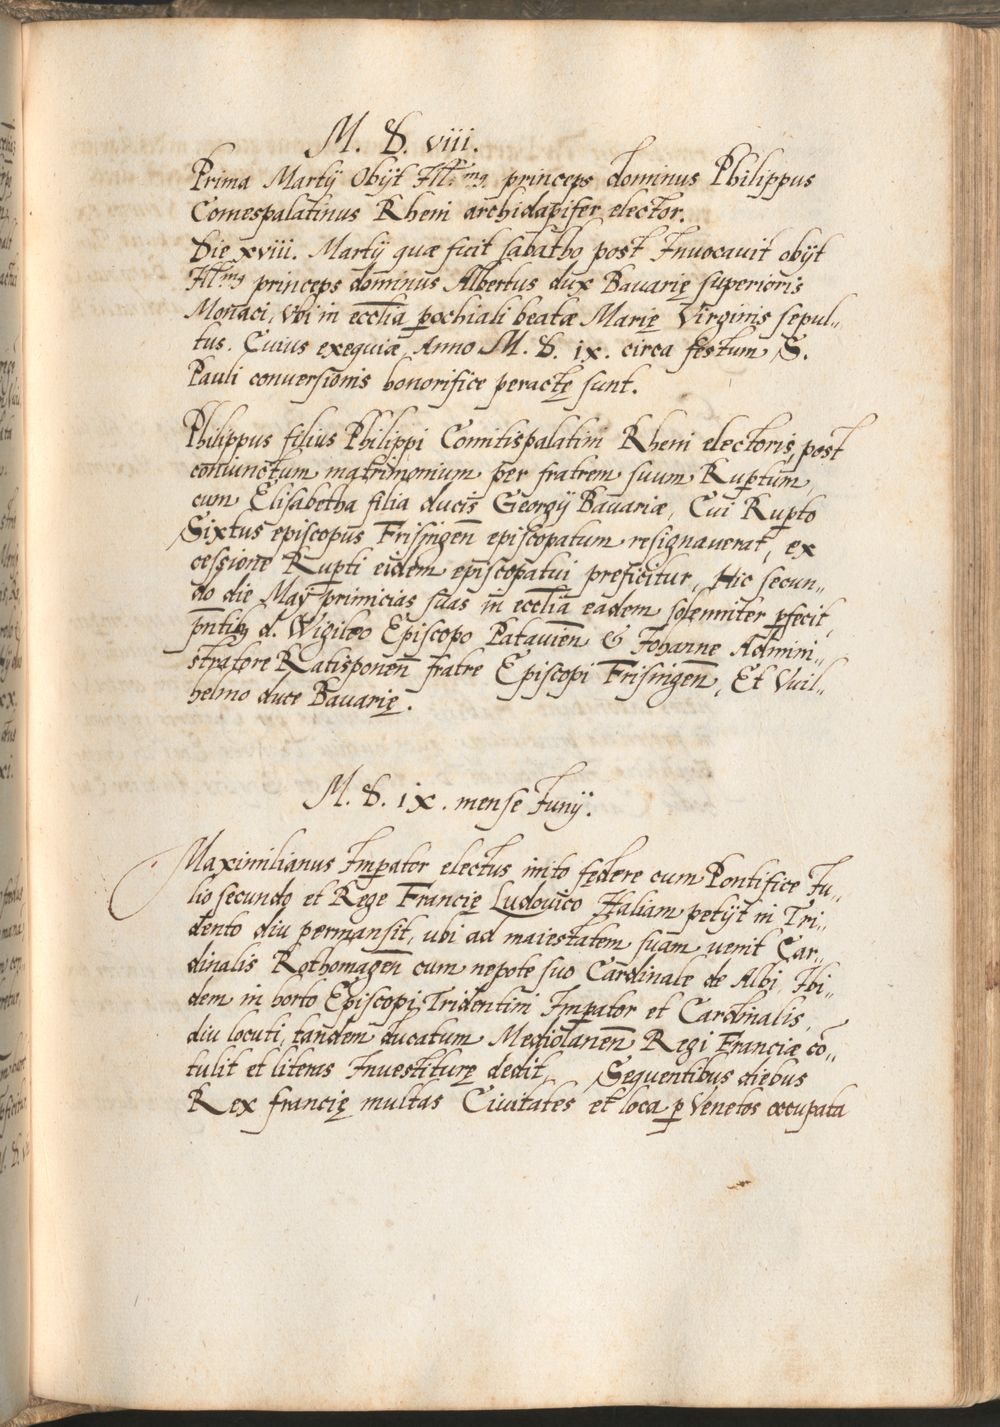 M. D. viii.
Prima Martij Obijt Ill.mꝰ. princeps dominus Philippus
Comespalatinus Rheni archidapifer elector.
Die xviii. Martij quæ fuit sabatho post Inuocauit obijt
Ill.mꝰ princeps dominus Albertus dux Bauarię superioris
Monaci, vbi in eccl̄ia ꝑochiali beatæ Marię Virginis sepul„
tus. Cuius exequiæ Anno M. D. ix. circa festum S.
Pauli conuersionis honorifice peractę sunt.
Philippus filius Philippi Comitispalatini Rheni electoris, post
conuinctum matrimonium per fratrem suum Ruꝑtum,
cum Elisabetha filia ducis Georgij Bauariæ, Cui Ruꝑto
Sixtus episcopus Frisingen̄ episcopatum resignauerat, ex
cessione Ruꝑti eidem episcopatui preficitur, Hic secun„
do die May primicias suas in eccl̄ia eadem solenniter ꝑfecit,
p̄ntibꝫ d. Wigileo Episcopo Patauien̄ & Iohanne Admini„
stratore Ratisponen̄ fratre Episcopi Frisingen̄, Et Vuil„
helmo duce Bauarię.
M. D. ix. mense Iunij.
Maximilianus Imꝑator electus inito fędere cum Pontifice Iu„
lio secundo et Rege Francię Ludouico Italiam petijt in Tri„
dento diu permansit, ubi ad maiestatem suam uenit Car„
dinalis Rothomagen̄ cum nepote suo Cardinale de Albi, Ibi„
dem in horto Episcopi Tridentini Imꝑator et Cardinalis,
diu locuti, tandem ducatum Mediolanen̄ Regi Franciæ cō„
tulit et literas Inuestiturę dedit, Sequentibus diebus
Rex francię multas Ciuitates et loca ꝑ Venetos occupata